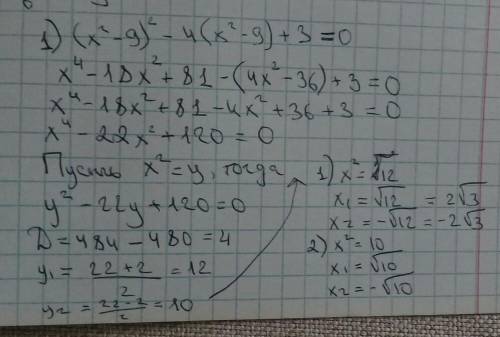 1) (x²-9)² - 4(x²-9) + 3 = 0
x⁴ - 18x² + 81 - (4x² - 36) + 3 = 0
x⁴ - 18x² + 81 - 4x² + 36 + 3 = 0
x⁴ - 22x² + 120 = 0
Пусть x² = y, тогда
y² - 22y + 120 = 0
D = 484 - 480 = 4
y₁ = (22+2)/2 = 12
y₂ = (22-2)/2 = 10
1) x² = √12
x₁ = √12 = 2√3
x₂ = -√12 = -2√3
2) x² = 10
x₁ = √10
x₂ = -√10